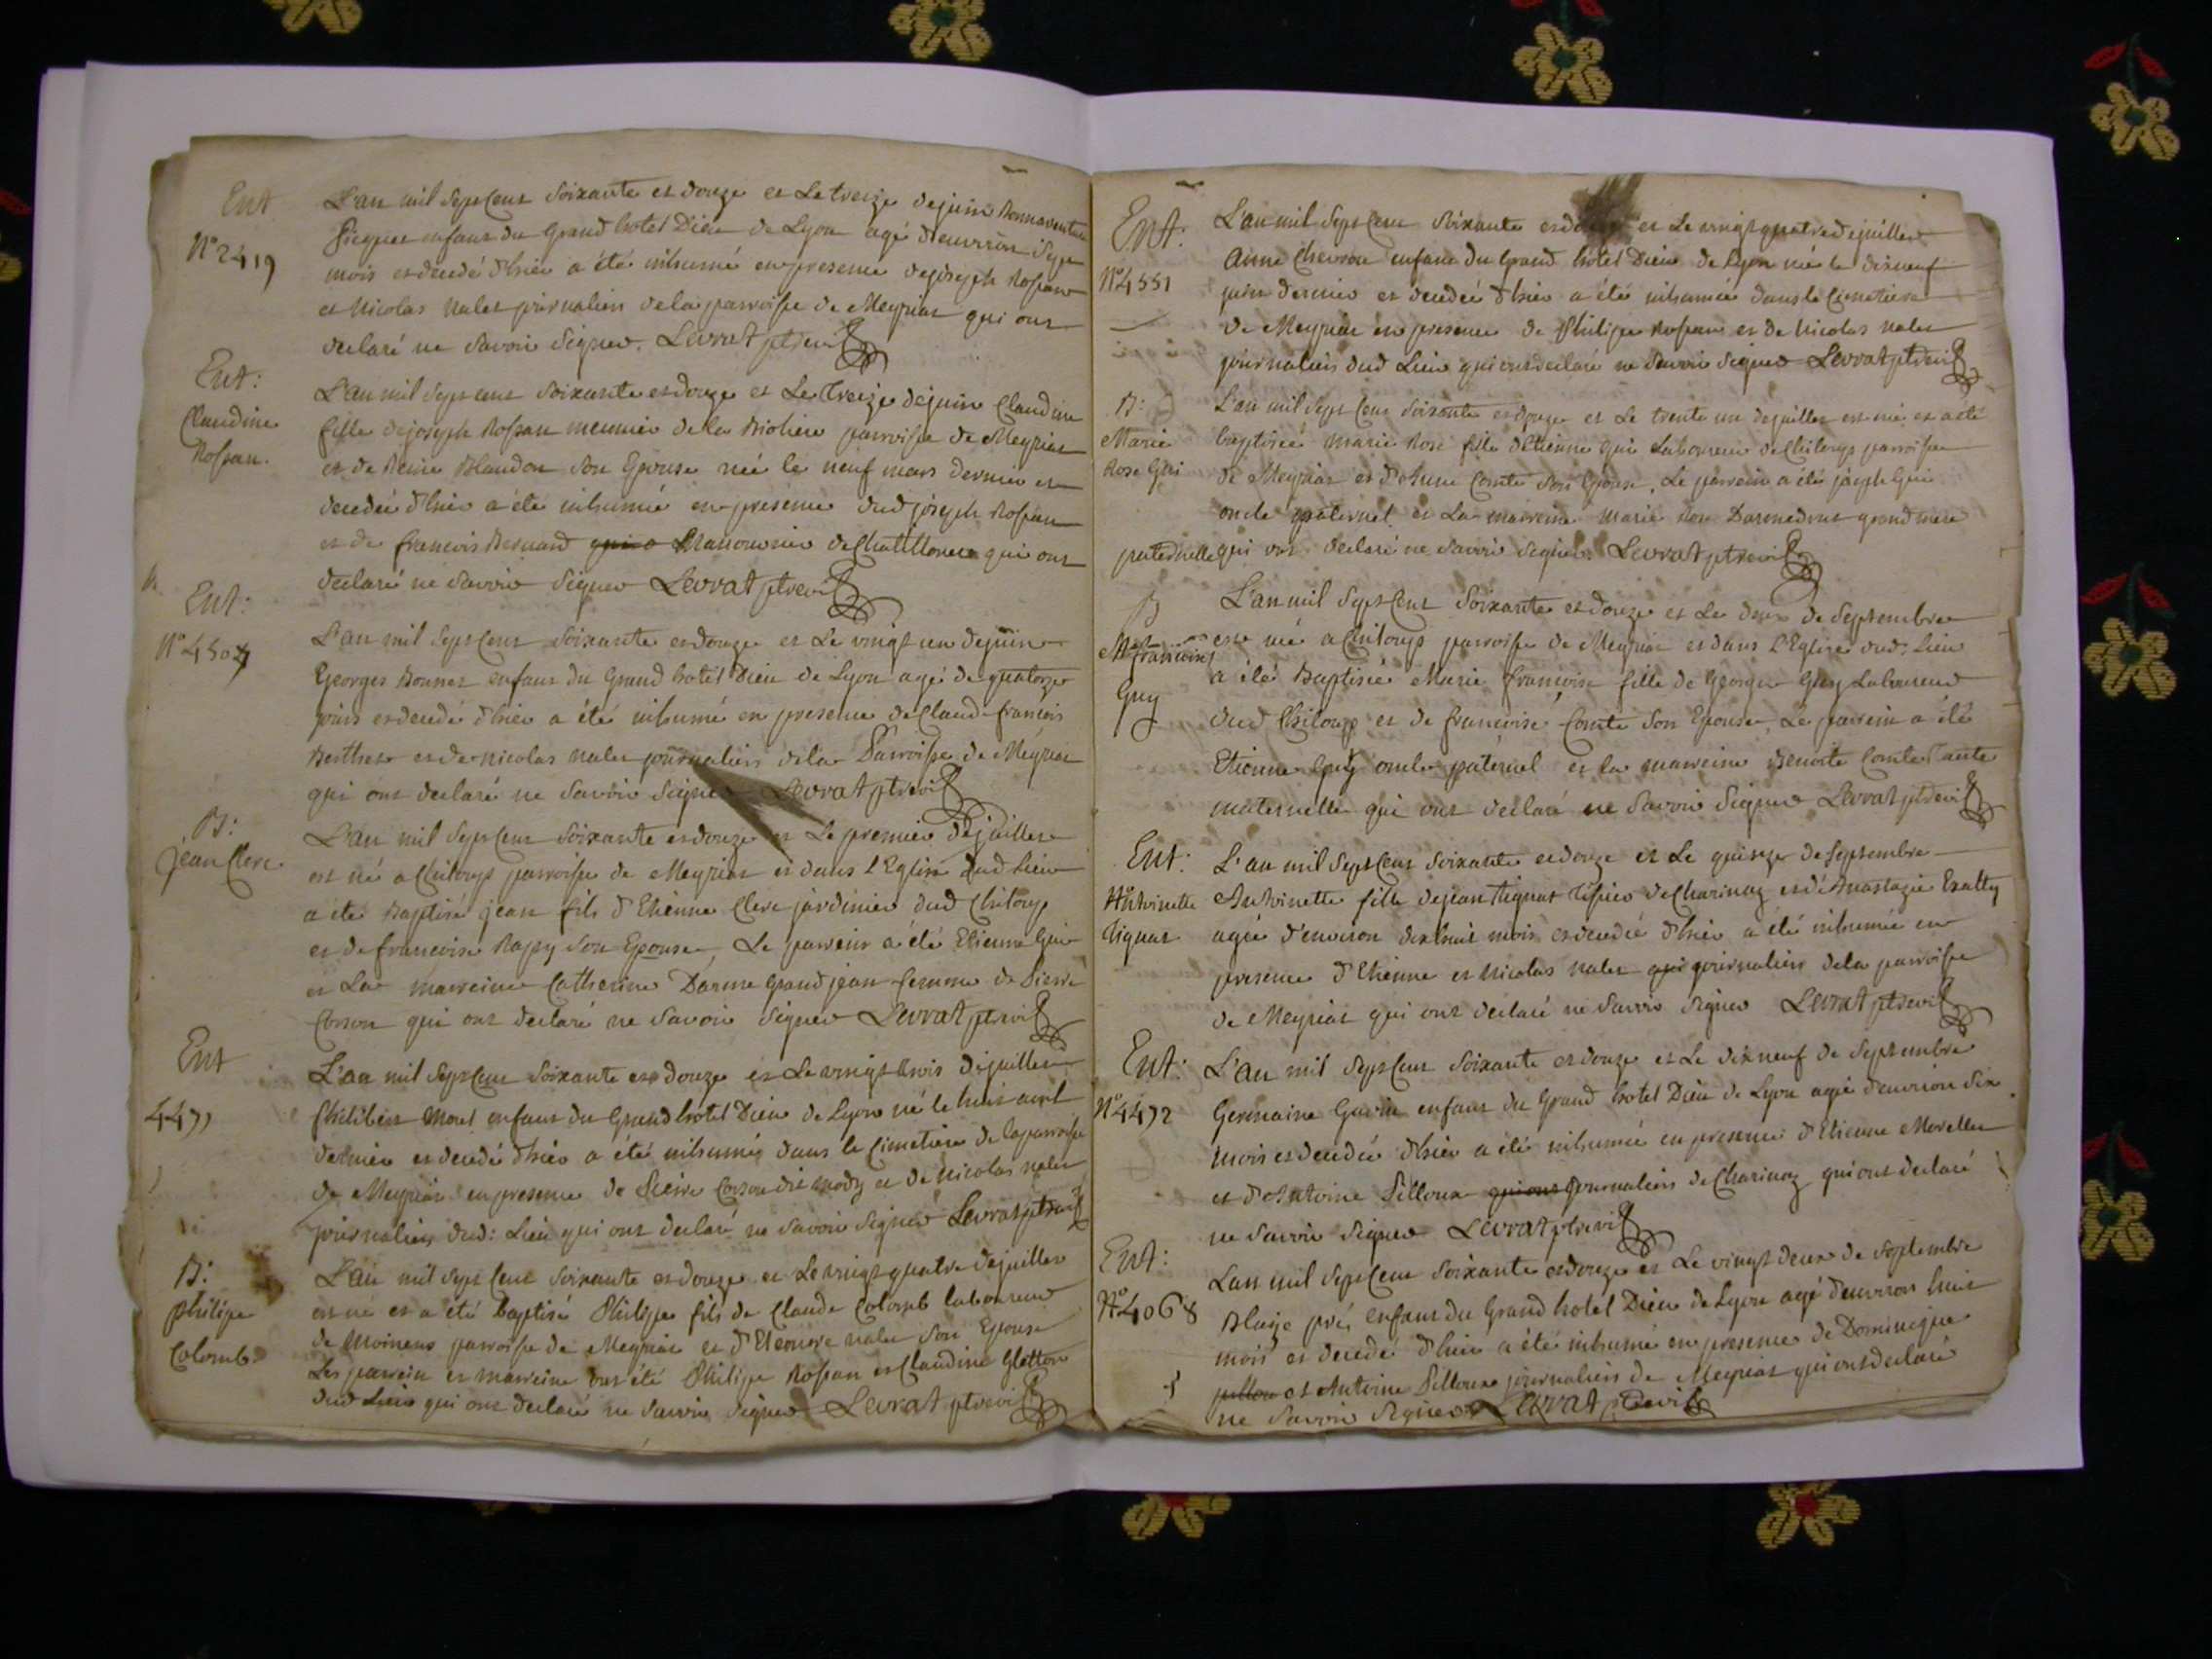 Ent
N° 2419
L'an mil sept cent soixante et douze et Le treize dejuin Bonnaventure
enfant du Grand hotel Dieu de Lyon agé d'environ sept
mois et decedé d'hier a été inhumé en presence dejoseph Rossan
et Nicolas nalet journaliers dela parroisse de Meyriat qui ont
declaré ne savoir signer. Levrat ptre vi
Ent:
Claudine
Rossan.
L'an mil sept cent soixante et douze et Le treize dejuin Claudine
fille dejoseph Rossan meunier de la parroisse de Meyriat
et de Reine Blandon son Epouse née le neuf mars dernier et
decedée d'hier a été inhumée en presence dud joseph Rossan
et de francois Bernard Manouvrier de Chatillonet qui ont
declaré ne savoir signer Levrat ptre vi
Ent:
N° 4504
L'an mil sept cent soixante et douze et Le vingt un dejuin
Georges Bonnet enfant du Grand hotel Dieu de Lyon agé de quatorze
jours et decedé d'hier a été inhumé en presence de Claude francois
Berthet et de nicolas nalet journaliers dela Parroisse de Meyriat
qui ont declaré ne savoir signer Levrat ptre vi
B:
jean Clerc
L'an mil sept cent soixante et douze et Le premier dejuillet
est né a Chiloup parroisse de Meyriat et dans l'Eglise dud Lieu
a été Baptisé jean fils d'Etienne Clerc jardinier dud Chiloup
et de francoise Rapy son Epouse, Le parrein a été Etienne Gui
et La marreine Catherine Darme grandjean femme de Pierre
Corson qui ont declaré ne savoir signer Levrat ptre vi
Ent
4477
L'an mil sept cent soixante et douze et Le vingt trois dejuillet
Philibert Morel enfant du Grand hotel Dieu de Lyon né le huit avril
dernier et decedé d'hier a été inhumé dans le Cimetiere de la parroisse
de Meyriat en presence de Pierre Corson dit et de Nicolas nalet
journaliers dud: Lieu qui ont declaré ne savoir signer Levrat ptre vi
B:
philipe
Colomb
L'an mil sept cent soixante et douze et Le vingt quatre dejuillet
est né et a été baptisé Philippe fils de Claude Colomb laboureur
de Moinens parroisse de Meyriat et d'Eleonore nalet son Epouse
Les parrein et marreine ont été Philipe Rossan et Claudine Gletton
dud Lieu qui ont declaré ne savoir signer Levrat ptre vi
Ent:
N° 4551
L'an mil sept cent soixante et douze et Le vingt quatre dejuillet
Anne Chevron enfant du Grand hotel Dieu de Lyon née le dixneuf
juin dernier et decedée d'hier a été inhumée dans le Cimetiere
de Meyriat en presence de Philipe Rossan et de Nicolas nalet
journaliers dud Lieu qui ont declaré ne savoir signer Levrat ptre vi
B:
Marie
Rose Gui
L'an mil sept cent soixante et douze et Le trente un dejuillet est née et a été
baptisée marie Rose fille d'Etienne Gui Laboureur de Chiloup parroisse
de Meyriat et d'Anne Comte son Epouse. Le parrein a été joseph Gui
oncle paternel et La marreine Marie Rose Darmedrut grand mere
paternelle qui ont declaré ne savoir signer. Levrat ptre vi
B
Mie francoise
Guy
L'an mil sept cent soixante et douze et Le deux de septembre
est née a Chiloup parroisse de Meyriat et dans l'Eglise dud: Lieu
a été Baptisée Marie francoise fille de George Guy Laboureur
dud Chiloup et de francoise Comte son Epouse. Le parrein a été
Etienne Guy oncle paternel et la marreine Benoite Comte Tante
maternelle qui ont declaré ne savoir signer Levrat ptre vi
Ent:
Antoinette
Tignat
L'an mil sept cent soixante et douze et Le quinze de septembre
Antoinette fille dejean Tignat Tissier de Charinaz et d'Anastazie
agée d'environ dixhuit mois et decedée d'hier a été inhumée en
presence d'Etienne et Nicolas nalet qui journaliers dela parroisse
de Meyriat qui ont declaré ne savoir signer Levrat ptre vi
Ent:
N° 4472
L'an mil sept cent soixante et douze et Le dixneuf de septembre
Germaine enfant du Grand hotel Dieu de Lyon agée d'environ six
mois et decedée d'hier a été inhumée en presence d'Etienne Morellet
et d'Antoine Pilloux qui ont journaliers de Charinaz qui ont declaré
ne savoir signer Levrat ptre vi
Ent:
N° 4068
L'an mil sept cent soixante et douze et Le vingt deux de septembre
Blaise pré enfant du Grand hotel Dieu de Lyon agé d'environ huit
mois et decedé d'hier a été inhumé en presence de Dominique
pilloux et Antoine Pilloux journaliers de Meyriat qui ont declaré
ne savoir signer Levrat ptre vi